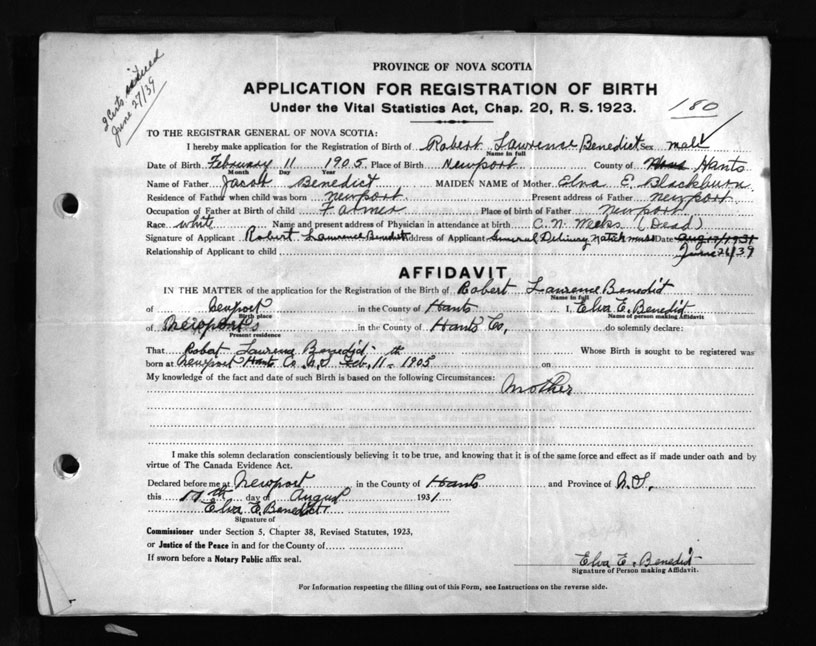 2 Certs issued
June 27/39
PROVINCE OF NOVA SCOTIA
APPLICATION FOR REGISTRATION OF BIRTH
Under the Vital Statistics Act, Chap. 20, R. S. 1923.
180
TO THE REGISTRAR GENERAL OF NOVA SCOTIA:
I hereby make application for the Registration of Birth of Robert Lawrence Benedict Sex male
Name in full
Date of Birth February 11 1905 Place of Birth Newport County of Hants
Month Day Year
Name of Father Jacob Benedict MAIDEN NAME of Mother Elva E. Blackburn
Residence of Father when child was born Newport Present address of Father Newport
Occupation of Father at Birth of child Farmer Place of birth of Father Newport
Race white Name and present address of Physician in attendance at birth C. N. Meeks (Dead)
Signature of Applicant Robert Lawrence Benedict Address of Applicant General Delivery Date Aug 17/1931
Relationship of Applicant to child June 26/39
AFFIDAVIT
IN THE MATTER of the application for the Registration of the Birth of Robert Lawrence Benedict
Name in full
of Newport in the County of Hants I, Elva E. Benedict
Birth place Name of person making Affidavit
of Newport in the County of Hants Co, do solemnly declare:
Present residence
That Robert Lawrence Benedict Whose Birth is sought to be registered was
born at Newport Hants Co. N.S Feb. 11th 1905 on
My knowledge of the fact and date of such Birth is based on the following Circumstances:
Mother
I make this solemn declaration conscientiously believing it to be true, and knowing that it is of the same force and effect as if made under oath and by
virtue of The Canada Evidence Act.
Declared before me at Newport in the County of Hants and Province of N.S.
this 17th day of August 1931
Elva E. Benedict
Signature of
Commissioner under Section 5, Chapter 38, Revised Statutes, 1923,
or Justice of the Peace in and for the County of
If sworn before a Notary Public affix seal.
Elva E. Benedict
Signature of Person making Affidavit.
For Information respecting the filling out of this Form, see Instructions on the reverse side.